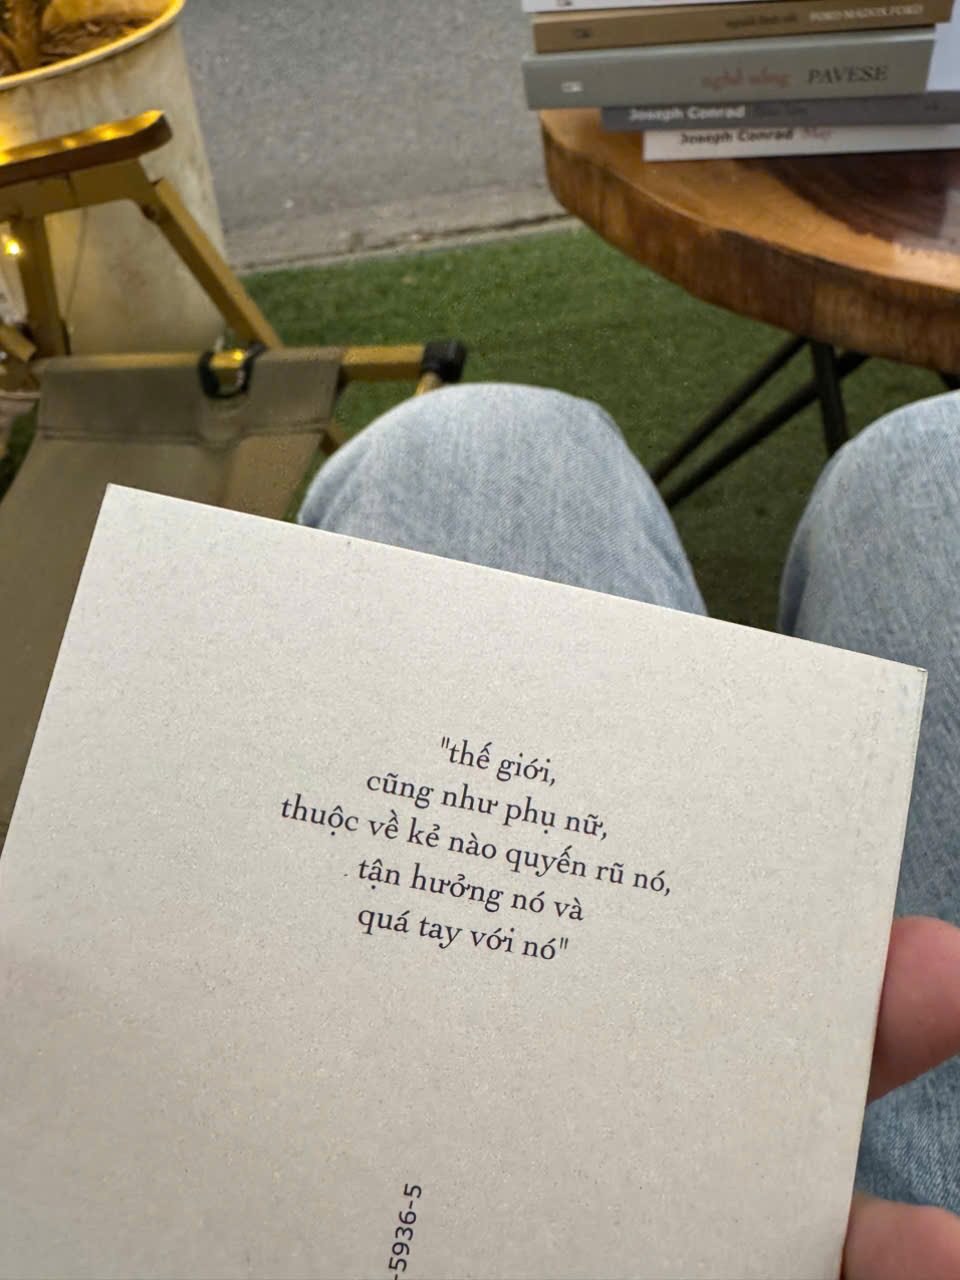 FORD MADOX FORD
nghề sống PAVESE
Joseph Conrad
Joseph Conrad May
"thế giới,
cũng như phụ nữ,
thuộc về kẻ nào quyến rũ nó,
tận hưởng nó và
quá tay với nó"
-5936-5